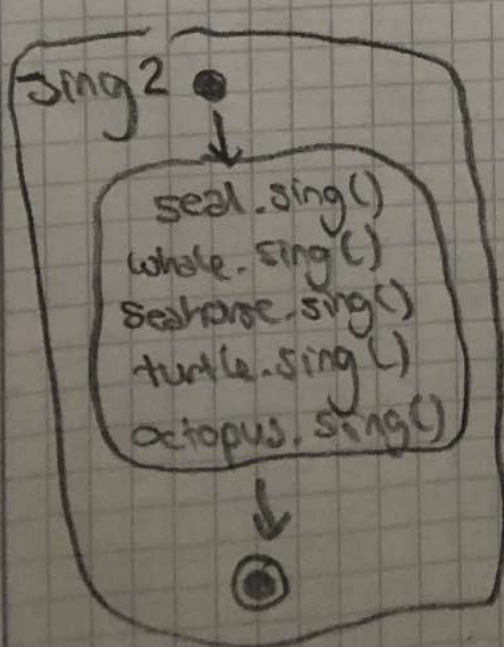 sing2
seal.sing()
whale.sing()
seahorse.sing()
turtle.sing()
octopus.sing()